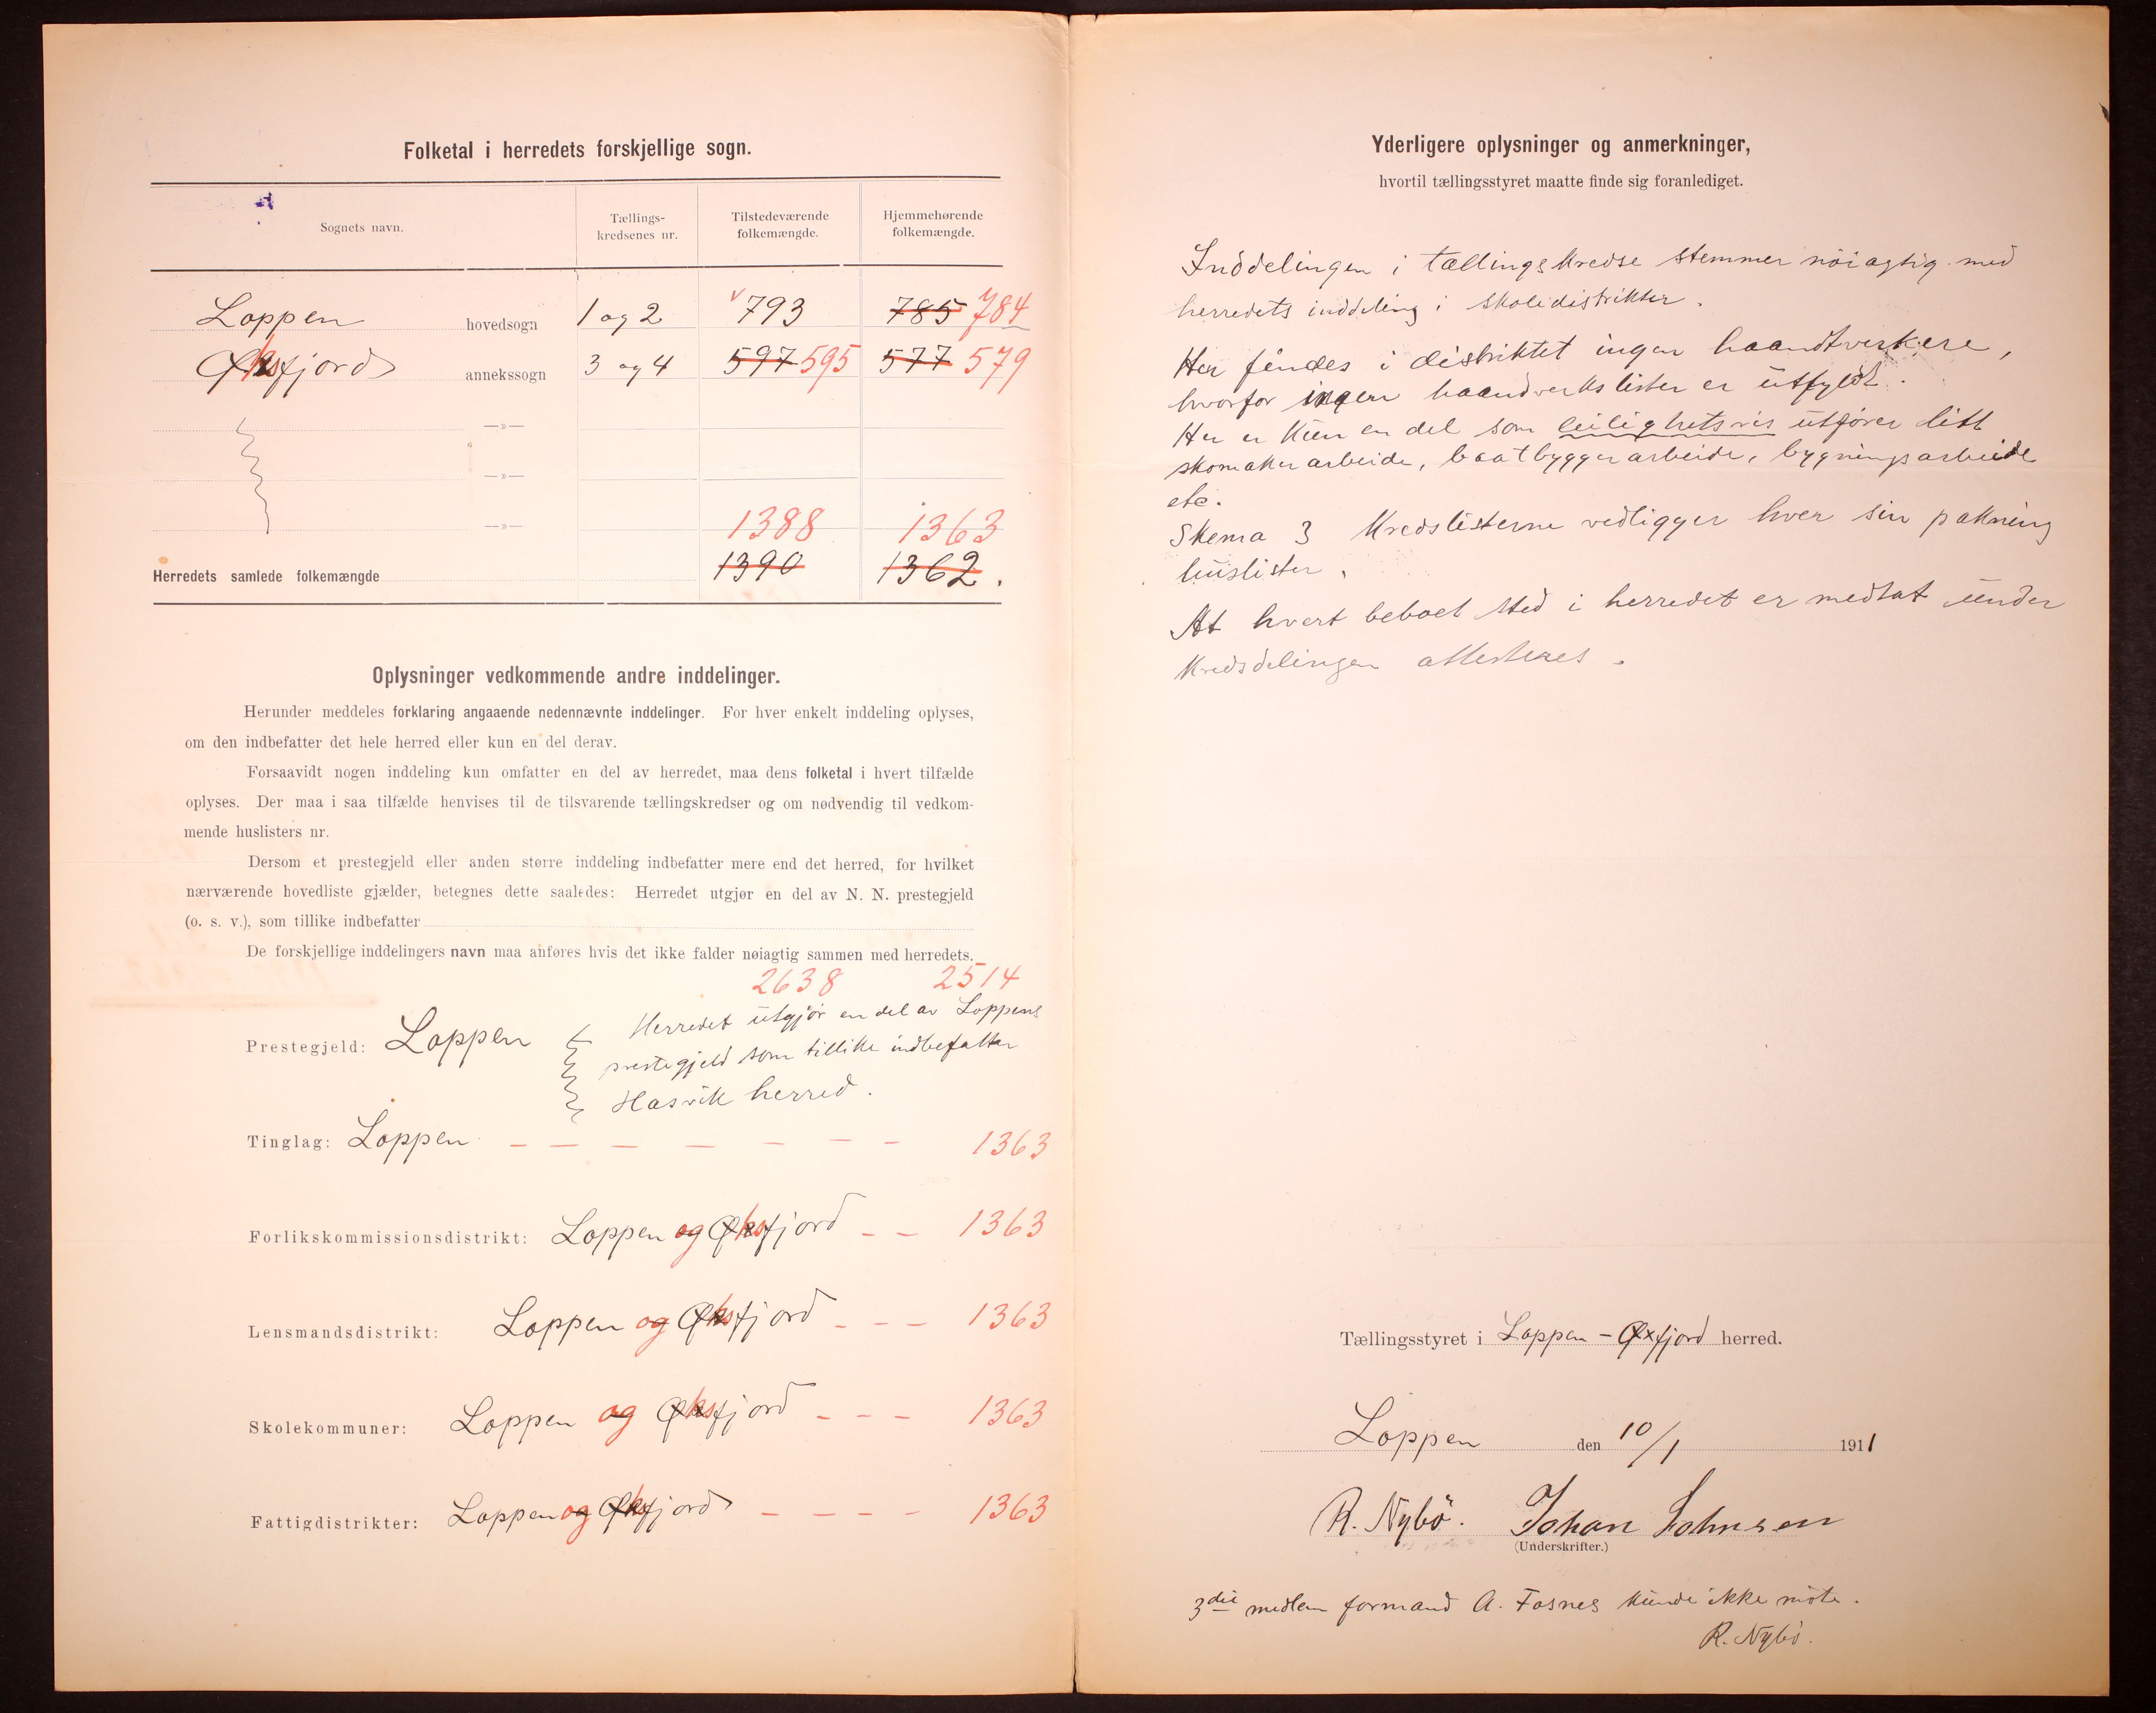 Folketal i herredets forskjellige sogn.
Sognets navn.
Tællings-
kredsenes nr.
Tilstedeværende
folkemængde.
Hjemmehørende
folkemængde.
Loppen hovedsogn 1 og 2 793 785 784
Øksfjord annekssogn 3 og 4 597 595 577 579
—»—
—»—
—»— 1388 1363
Herredets samlede folkemængde 1390 1362.
Oplysninger vedkommende andre inddelinger.
Herunder meddeles forklaring angaaende nedennævnte inddelinger. For hver enkelt inddeling oplyses,
om den indbefatter det hele herred eller kun en del derav.
Forsaavidt nogen inddeling kun omfatter en del av herredet, maa dens folketal i hvert tilfælde
oplyses. Der maa i saa tilfælde henvises til de tilsvarende tællingskredser og om nødvendig til vedkom-
mende huslisters nr.
Dersom et prestegjeld eller anden større inddeling indbefatter mere end det herred, for hvilket
nærværende hovedliste gjælder, betegnes dette saaledes: Herredet utgjør en del av N. N. prestegjeld
(o. s. v.), som tillike indbefatter
De forskjellige inddelingers navn maa anføres hvis det ikke falder nøiagtig sammen med herredets.
2638 2514
Prestegjeld: Loppen
Herredet utgjør en del av Loppens
prestegjeld som tillike indbefatter
Hasvik herred.
Tinglag: Loppen — — — — — — — 1363
Forlikskommissionsdistrikt: Loppen og Øksfjord — — 1363
Lensmandsdistrikt: Loppen og Øksfjord — — — 1363
Skolekommuner: Loppen og Øksfjord — — — 1363
Fattigdistrikter: Loppen og Øksfjord — — — — 1363
Yderligere oplysninger og anmerkninger,
hvortil tællingsstyret maatte finde sig foranlediget.
Inddelingen i tællingskredse stemmer nöiagtig med
herredets inddeling i skoledistrikter.
Her findes i distriktet ingen haandtverkere,
hvorfor ingen haandverkslister er utfyldt.
Her er kun en del som leilighetsvis utfører litt
skomakerarbeide, baatbyggerarbeide, bygningsarbeide
etc.
Skema 3 Kredslisterne vedligger hver sin pakning
huslister.
At hvert beboet sted i herredet er medtat under
kredsdelingen attesteres.
Tællingsstyret i Loppen - Øxfjord herred.
Loppen den 10/1 1911
R. Nybö. Johan Johnsen
(Underskrifter.)
3die medlem formand A. Fosnes kunde ikke möte.
R. Nybö.